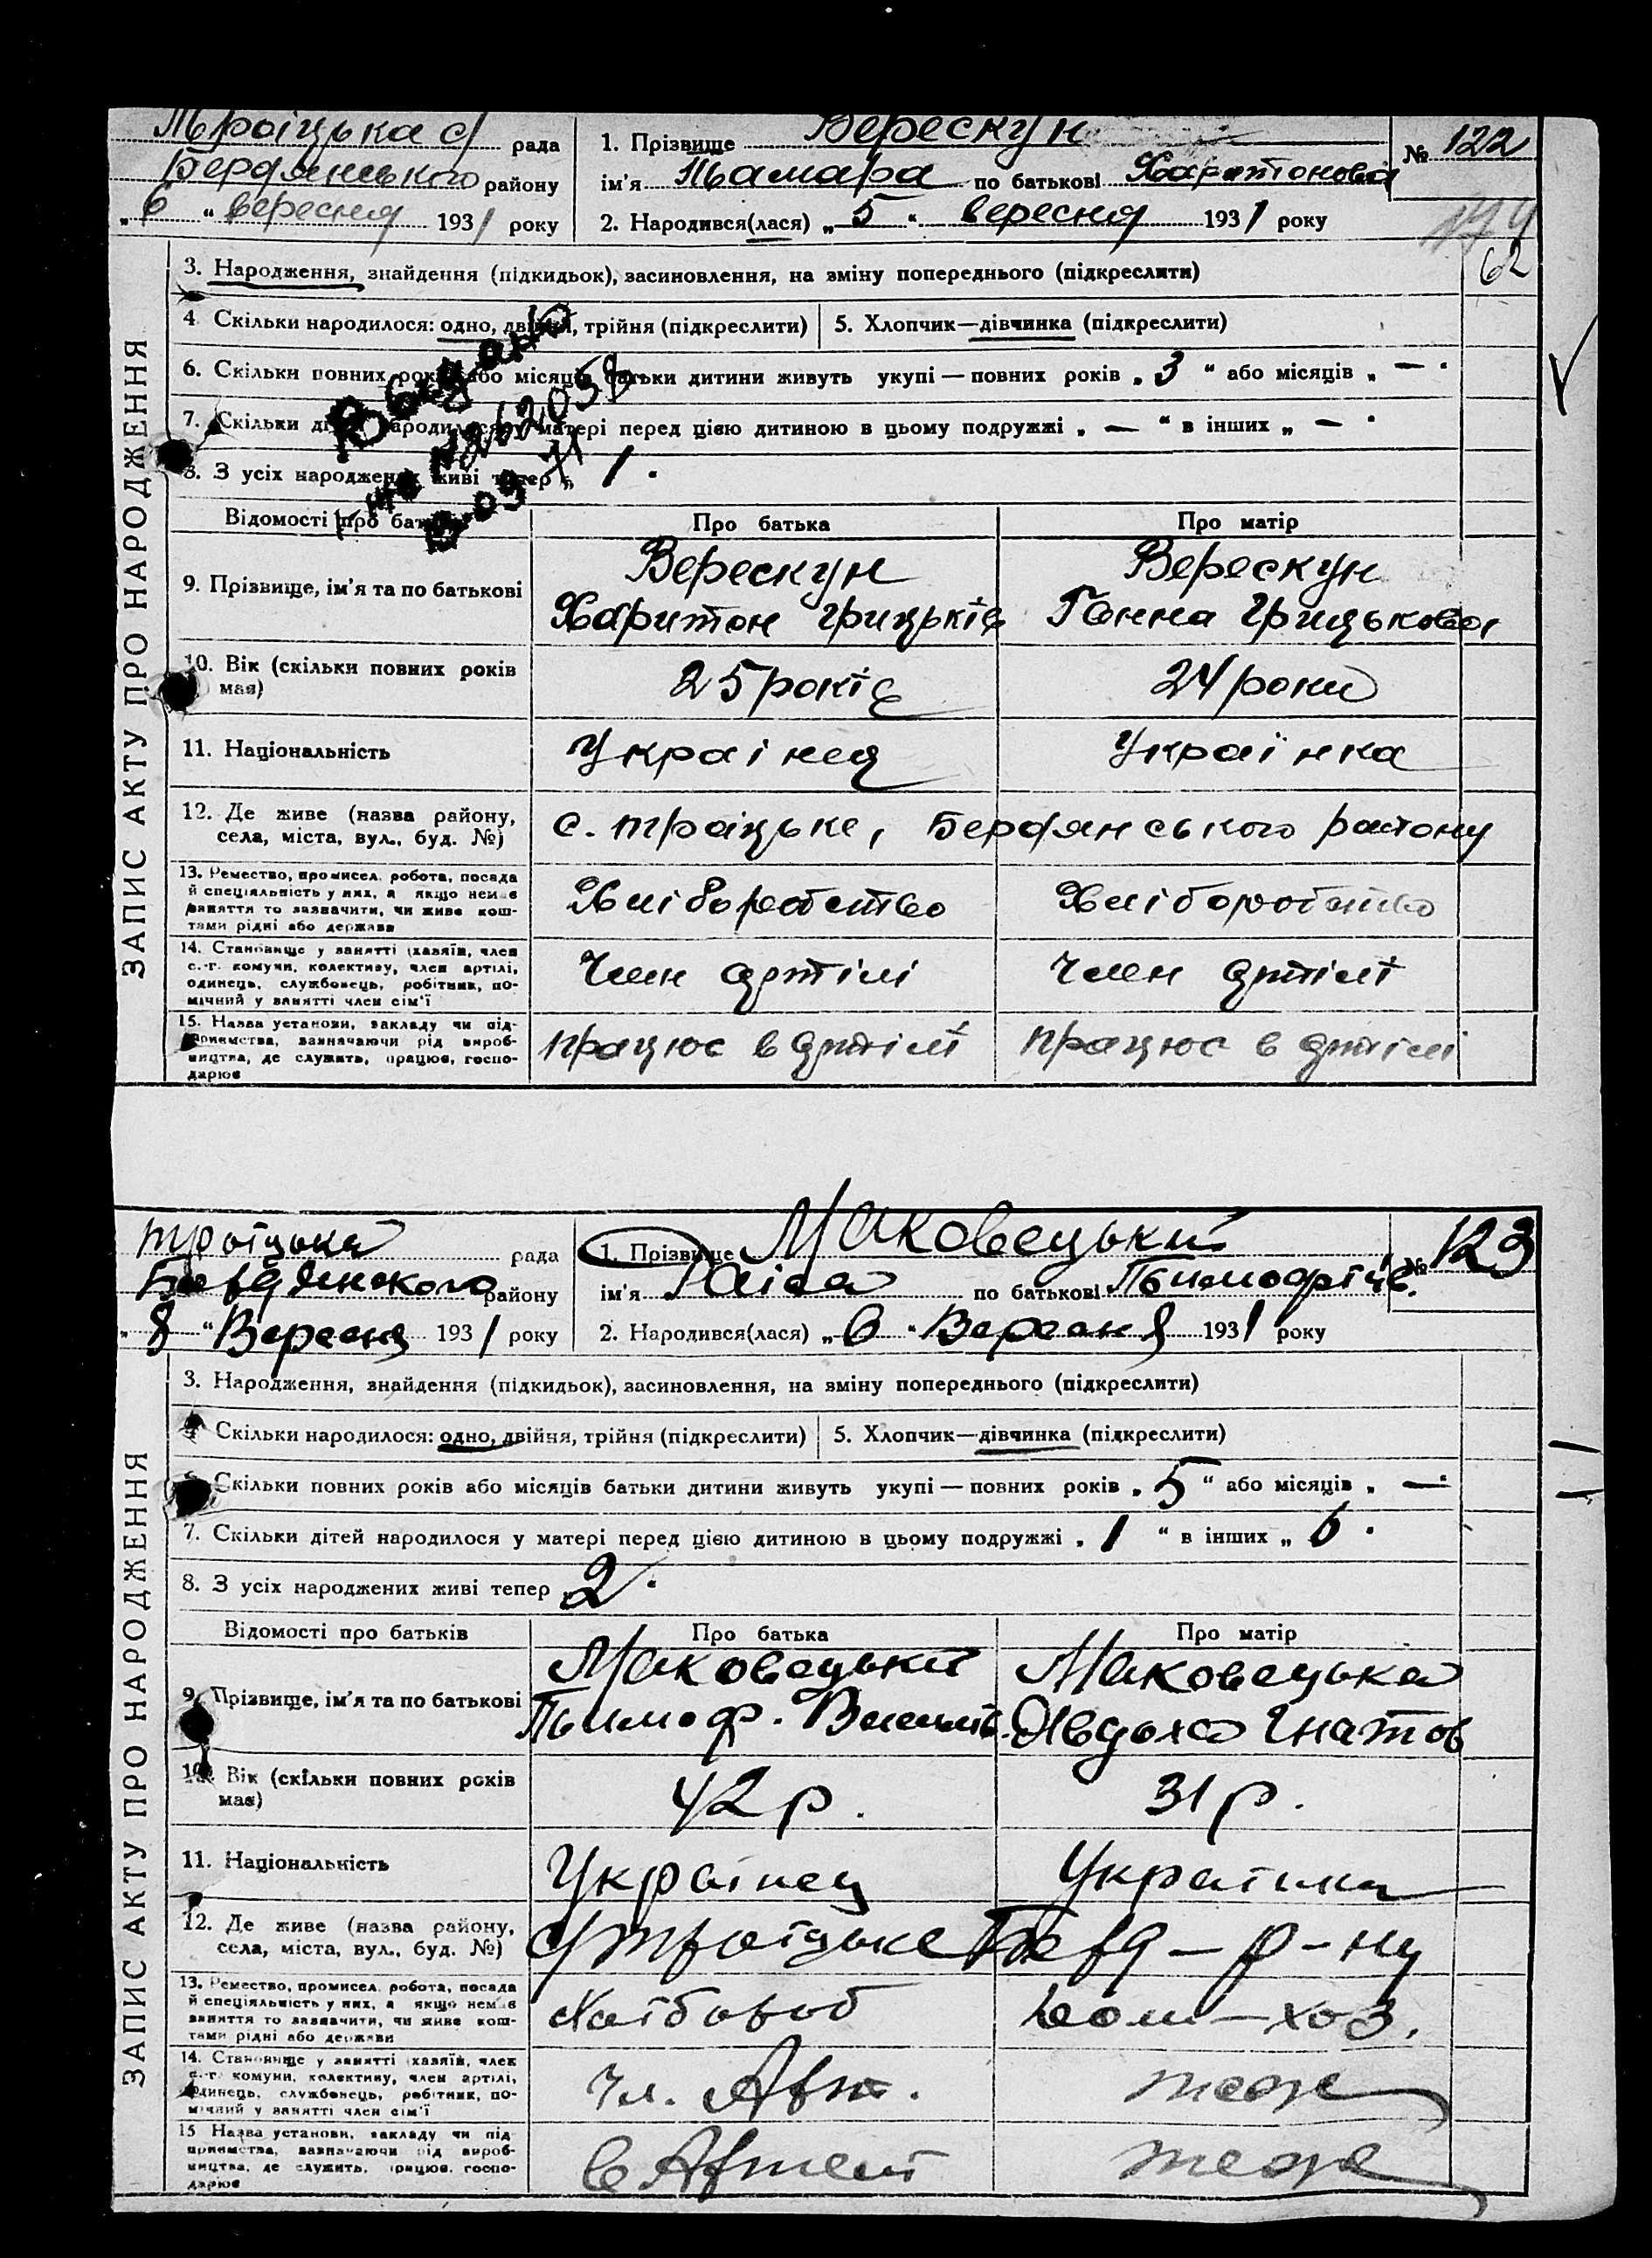 Троіцька с/ рада
Бердянського району
„6“ вересня 1931 року
1. Прізвище Верескун
ім'я Тамара по батькові Харитонова
2. Народився(лася) „5“ вересня 1931 року
№ 122
179
62
ЗАПИС АКТУ ПРО НАРОДЖЕННЯ
3. Народження, знайдення (підкидьок), засиновлення, на зміну попереднього (підкреслити)
4. Скільки народилося: одно, двійня, трійня (підкреслити) 5. Хлопчик—дівчинка (підкреслити)
6. Скільки повних років або місяців батьки дитини живуть укупі — повних років „3“ або місяців „—“
7. Скільки дітей народилося у матері перед цією дитиною в цьому подружжі „—“ в інших „—“
8. З усіх народжених живі тепер „1.
Відомості про батьків Про батька Про матір
9. Прізвище, ім'я та по батькові
Верескун
Харитон Грицьків
Верескун
Ганна Грицькова
10. Вік (скільки повних років має) 25 років 24 роки
11. Національність Украінец Українка
12. Де живе (назва району, села, міста, вул., буд. №) с. Троіцьке, Бердянського району
13. Ремество, промисел, робота, посада
й спеціяльність у них, а якщо немає
заняття то зазначити, чи живе кош-
тами рідні або держави
Хліборобство Хліборобство
14. Становище у занятті (хазяїн, член
с.-г. комуни, колективу, член артілі,
одинець, службовець, робітник, по-
мічний у занятті член сім'ї
Член артілі Член артілі
15. Назва установи, закладу чи під-
приємства, зазначаючи рід вироб-
ництва, де служить, працює, госпо-
дарює
працює в артілі працює в артілі
Троїцька рада
Бердянского району
„8“ Вересня 1931 року
1. Прізвище Маковецький
ім'я Раіса по батькові Тимофіїв.
2. Народився(лася) „6“ Вересня 1931 року
№ 123
ЗАПИС АКТУ ПРО НАРОДЖЕННЯ
3. Народження, знайдення (підкидьок), засиновлення, на зміну попереднього (підкреслити)
4. Скільки народилося: одно, двійня, трійня (підкреслити) 5. Хлопчик—дівчинка (підкреслити)
6. Скільки повних років або місяців батьки дитини живуть укупі — повних років „5“ або місяців „—“
7. Скільки дітей народилося у матері перед цією дитиною в цьому подружжі „1“ в інших „6.
8. З усіх народжених живі тепер „2.
Відомості про батьків Про батька Про матір
9. Прізвище, ім'я та по батькові
Маковецький
Тимоф.
Маковецька
Явдоха Гнатов
10. Вік (скільки повних років має) 42 р. 31 р.
11. Національність Українец Українка
12. Де живе (назва району, села, міста, вул., буд. №) с/Троїцьке Берд–р–ну
13. Ремество, промисел, робота, посада
й спеціяльність у них, а якщо немає
заняття то зазначити, чи живе кош-
тами рідні або держави
Хлібороб Дом–хоз.
14. Становище у занятті (хазяїн, член
с.-г. комуни, колективу, член артілі,
одинець, службовець, робітник, по-
мічний у занятті член сім'ї
Чл. Арт. теж
15. Назва установи, закладу чи під-
приємства, зазначаючи рід вироб-
ництва, де служить, працює, госпо-
дарює
в Артелі теж